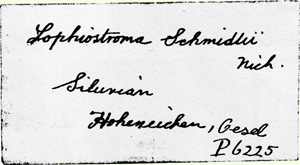 Lophiostroma Schmidtii
Nich.
Silurian
Hoheneichen, Oesel
P6225